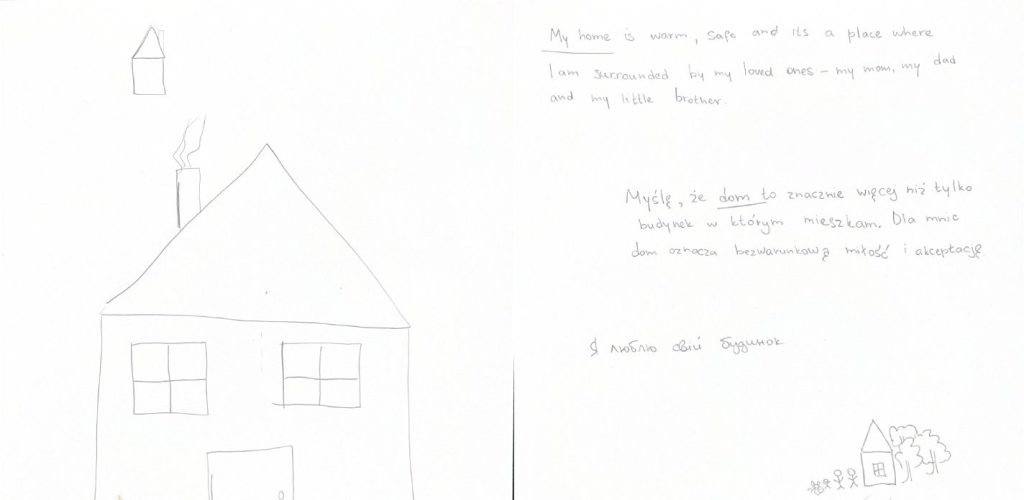 My home is warm, safe and its a place where
I am surrounded by my loved ones – my mom, my dad
and my little brother.
Myślę, że dom to znacznie więcej niż tylko
budynek w którym mieszkam. Dla mnie
dom oznacza bezwarunkową miłość i akceptację
Я люблю свій будинок